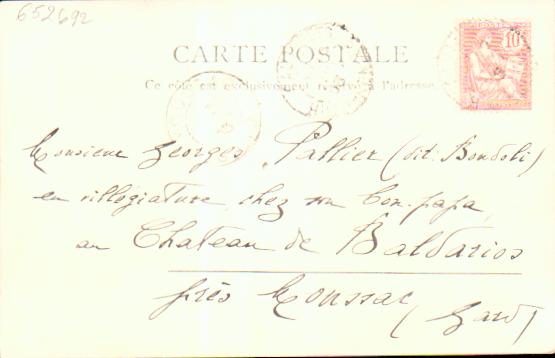 652692
CARTE POSTALE
Ce côté est exclusivement réservé à l'adresse
10
Monsieur Georges Pallier (dit. Bondoli)
en villégiature chez son bon-papa
au Chateau de Baldarios
près Moussac
(Gard)